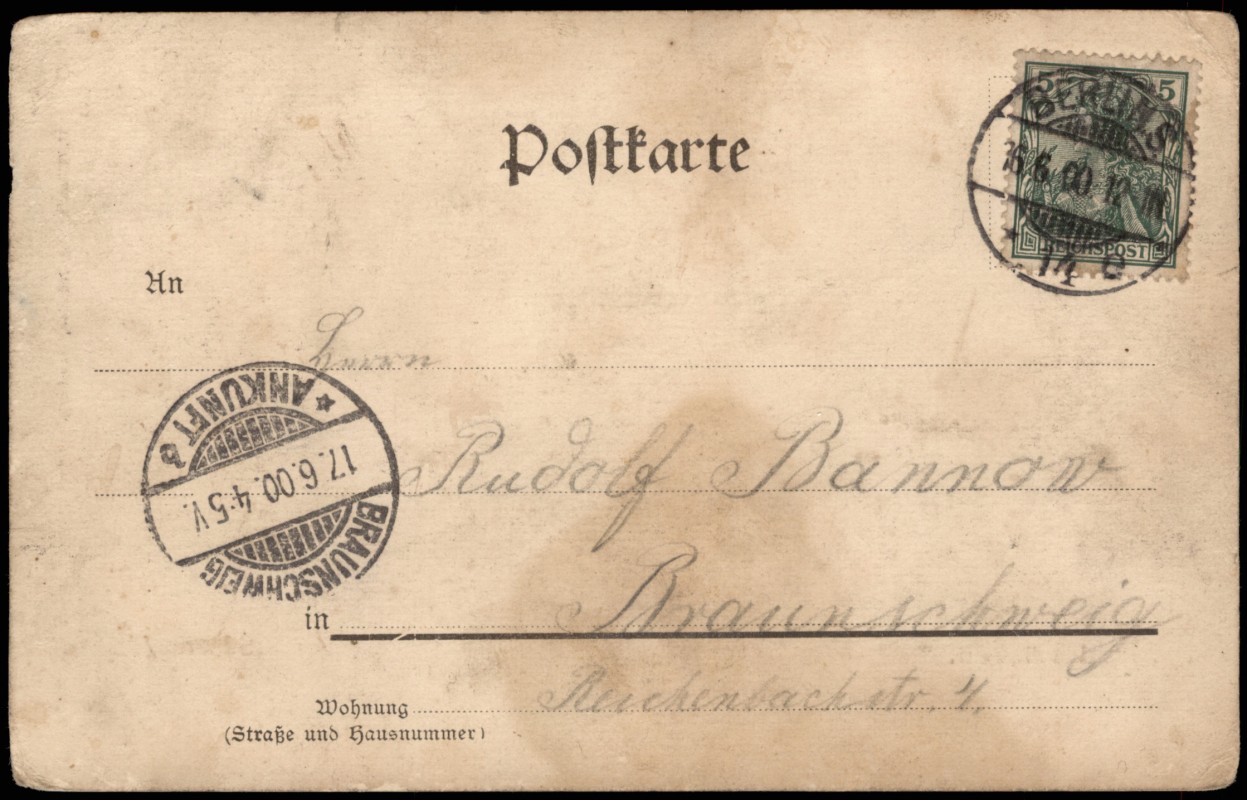 Postkarte
5 5
BERLIN S
16.6.00.12
REICHSPOST
14
An
Herrn
ANKUNFT
17.6.00.4-5V.
BRAUNSCHWEIG
Rudolf Bannow
in Braunschweig
Wohnung Reichenbachstr. 4.
(Straße und Hausnummer)